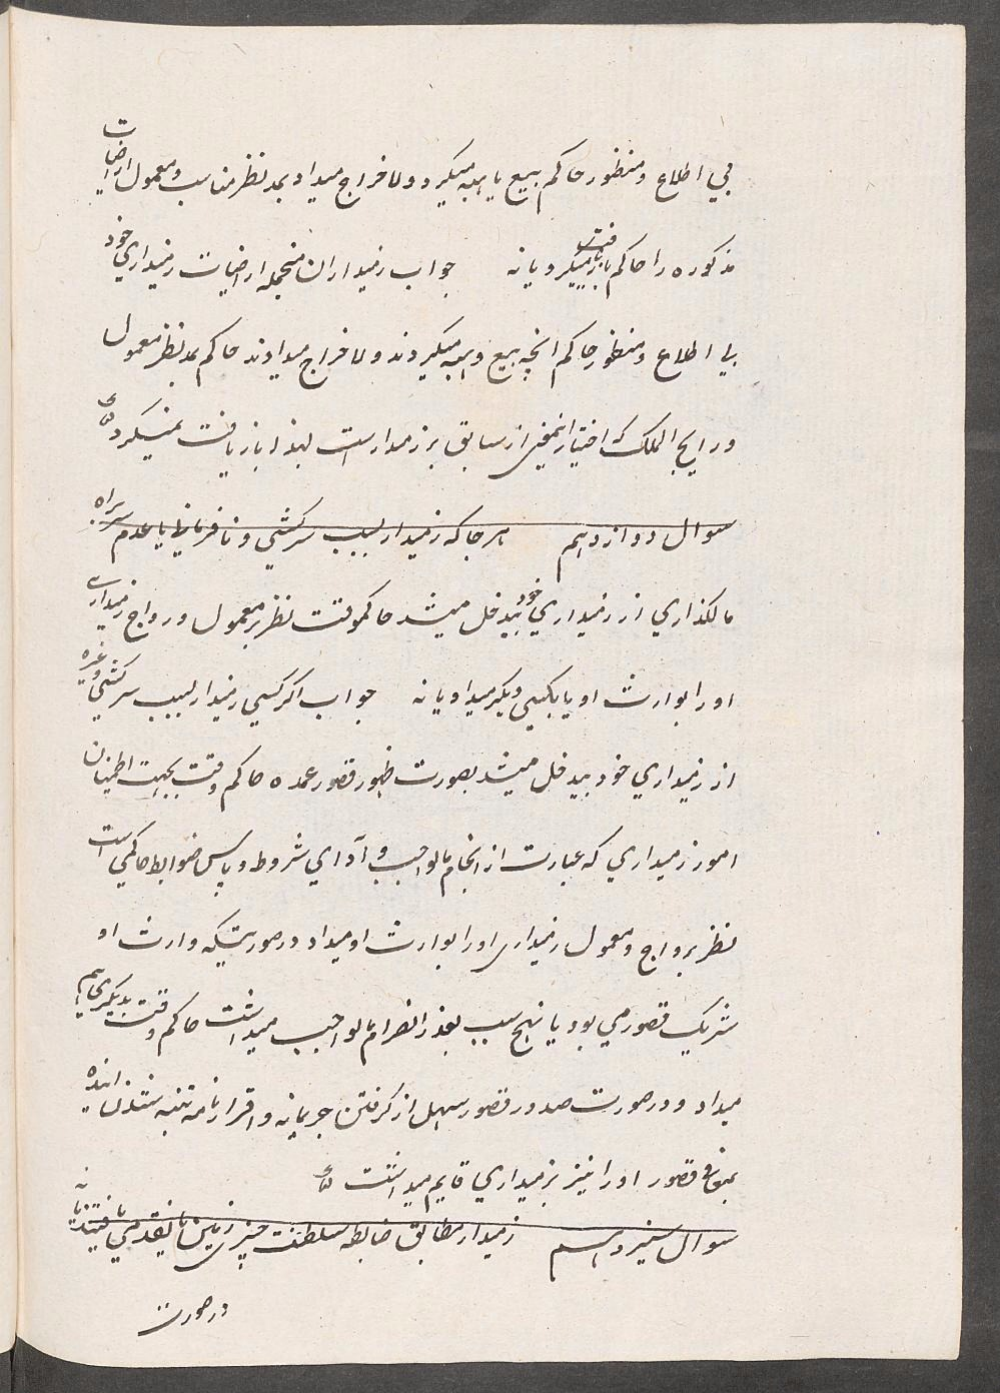 بي اطلاع و منظور حاكم ببيع يا بهبه ميكرد و لا خراج ميداد بمد نظر مناسب و معمول اراضيات
مذكوره را حاكم بازيافت ميكرد يا نه جواب زميداران منجمله اراضيات زميداري خود
بي اطلاع و منظور حاكم انچه ببيع و بهبه ميكردند و لا خراج ميدادند حاكم بمد نظر معمول
و رايج الملك كه اختيار اينمعني از سابق بر زميدار است لهذا بازيافت نميكرد
سوال دوازدهم هر جا كه زميدار بسبب سركشي و نافرماني يا عدم سربراه
مالگذاري از زميداري خود بيدخل ميشد حاكم وقت نظر بر معمول و رواج زميداري
او را بوارث او يا بكسي ديگر ميداد يا نه جواب اگر كسي زميدار بسبب سركشي وغيره
از زميداري خود بيدخل ميشد بصورت ظهور قصور عمده حاكم وقت بجهت اطمينان
امور زميداري كه عبارت از انجام مالواجب و آداي شروط و پاس ضوابط حاكمي است
نظر برواج و معمول زميداري او را بوارث او ميداد در صورتيكه وارث او
شريك قصور مي بود يا بهيچ سبب بعذر انصرام مالواجب ميداشت حاكم وقت بديگري هم
ميداد و در صورت صدور قصور سهل از گرفتن جريمانه و اقرارنامه تنبه آينده
بمعافي قصور او را نيز بزميداري قايم ميداشت
سوال سيزدهم زميدار مطابق ضابطه سلطنت چيزي زمين يا نقد مي يافتند يا نه
در صورت